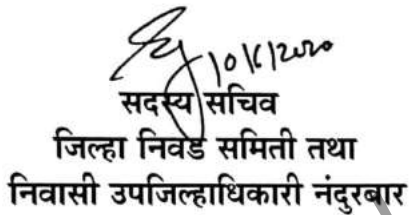 10/6/2020
सदस्य सचिव
जिल्हा निवड समिती तथा
निवासी उपजिल्हाधिकारी नंदुरबार